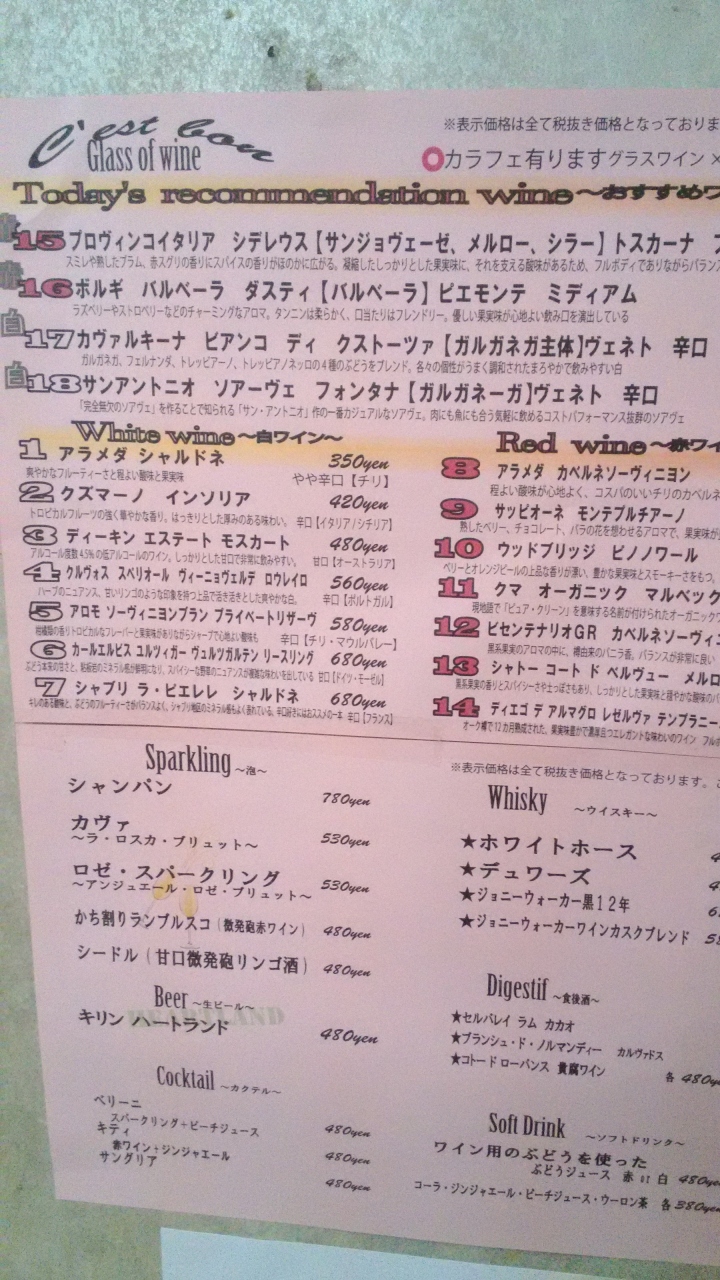 C'est bon
Glass of wine
※表示価格は全て税抜き価格となっておりま
カラフェ有ります グラスワイン ×
Today's recommendation wine ～おすすめワ
15 プロヴィンコイタリア シデレウス【サンジョヴェーゼ、メルロー、シラー】トスカーナ
スミレや熟したプラム、赤スグリの香りにスパイスの香りがほのかに広がる。凝縮したしっかりとした果実味に、それを支える酸味があるため、フルボディでありながらバラン
16 ボルギ バルベーラ ダスティ【バルベーラ】ピエモンテ ミディアム
ラズベリーやストロベリーなどのチャーミングなアロマ。タンニンは柔らかく、口当たりはフレンドリー。優しい果実味が心地よい飲み口を演出している
白 17 カヴァルキーナ ビアンコ ディ クストーツァ【ガルガネガ主体】ヴェネト 辛口
ガルガネガ、フェルナンダ、トレッビアーノ、トレッビアノネッロの4種のぶどうをブレンド。各々の個性がうまく調和されたまろやかで飲みやすい白
白 18 サンアントニオ ソアーヴェ フォンタナ【ガルガネーガ】ヴェネト 辛口
「完全無欠のソアヴェ」を作ることで知られる「サン・アントニオ」作の一番カジュアルなソアヴェ。肉にも魚にも合う気軽に飲めるコストパフォーマンス抜群のソアヴェ
White wine ～白ワイン～
1 アラメダ シャルドネ 350yen
爽やかなフルーティーさと程よい酸味と果実味 やや辛口【チリ】
2 クズマーノ インソリア 420yen
トロピカルフルーツの強く華やかな香り。はっきりとした厚みのある味わい。 辛口【イタリア/シチリア】
3 ディーキン エステート モスカート 480yen
アルコール度数4.5%の低アルコールのワイン。しっかりとした甘口で非常に飲みやすい。 甘口【オーストラリア】
4 クルヴォス スペリオール ヴィーニョヴェルデ ロウレイロ 560yen
ハーブのニュアンス、甘いリンゴのような印象を持つ上品で活き活きとした爽やかな白。 辛口【ポルトガル】
5 アロモ ソーヴィニヨンブラン プライベートリザーヴ 580yen
柑橘類の香りトロピカルなフレーバーと果実味がありながらシャープで心地よい酸味も 辛口【チリ・マウルバレー】
6 カールエルビス ユルツィガー ヴュルツガルテン リースリング 680yen
甘口【ドイツ・モーゼル】
7 シャブリ ラ・ピエレレ シャルドネ 680yen
辛口【フランス】
Red wine ～赤ワイ
8 アラメダ カベルネソーヴィニヨン
程よい酸味が心地よく、コスパのいいチリのカベルネ
9 サッビオーネ モンテプルチアーノ
熟したベリー、チョコレート、バラの花を想わせるアロマで、果実味が
10 ウッドブリッジ ピノノワール
ベリーとオレンジピールの上品な香りが漂い、豊かな果実味とスモーキーさをもつ。
11 クマ オーガニック マルベック
現地語で「ピュア・クリーン」を意味する名前が付けられたオーガニックワ
12 ビセンテナリオGR カベルネソーヴィニ
黒系果実のアロマの中に、樽由来のバニラ香。バランスが非常に良い
13 シャトー コート ド ベルヴュー メルロ
14 ディエゴ デ アルマグロ レゼルヴァ テンプラニー
オーク樽で12カ月熟成された、果実味豊かで濃厚且つエレガントな味わいのワイン
Sparkling ～泡～
シャンパン 780yen
カヴァ
～ラ・ロスカ・ブリュット～ 530yen
ロゼ・スパークリング
～アンジュエール・ロゼ・ブリュット～ 530yen
かち割りランブルスコ（微発砲赤ワイン） 480yen
シードル（甘口微発砲リンゴ酒） 480yen
Beer ～生ビール～
HEARTLAND
キリン ハートランド 480yen
Cocktail ～カクテル～
ベリーニ
スパークリング＋ピーチジュース 480yen
キティ
赤ワイン＋ジンジャエール 480yen
サングリア 480yen
※表示価格は全て税抜き価格となっております。
Whisky ～ウイスキー～
★ホワイトホース
★デュワーズ
★ジョニーウォーカー黒12年
★ジョニーウォーカーワインカスクブレンド
Digestif ～食後酒～
★セルバレイ ラム カカオ
★ブランシュ・ド・ノルマンディー カルヴァドス
★コトー ド ローバンス 貴腐ワイン
各 480ye
Soft Drink ～ソフトドリンク～
ワイン用のぶどうを使った
ぶどうジュース 赤 or 白 480ye
コーラ・ジンジャエール・ピーチジュース・ウーロン茶 各 380ye